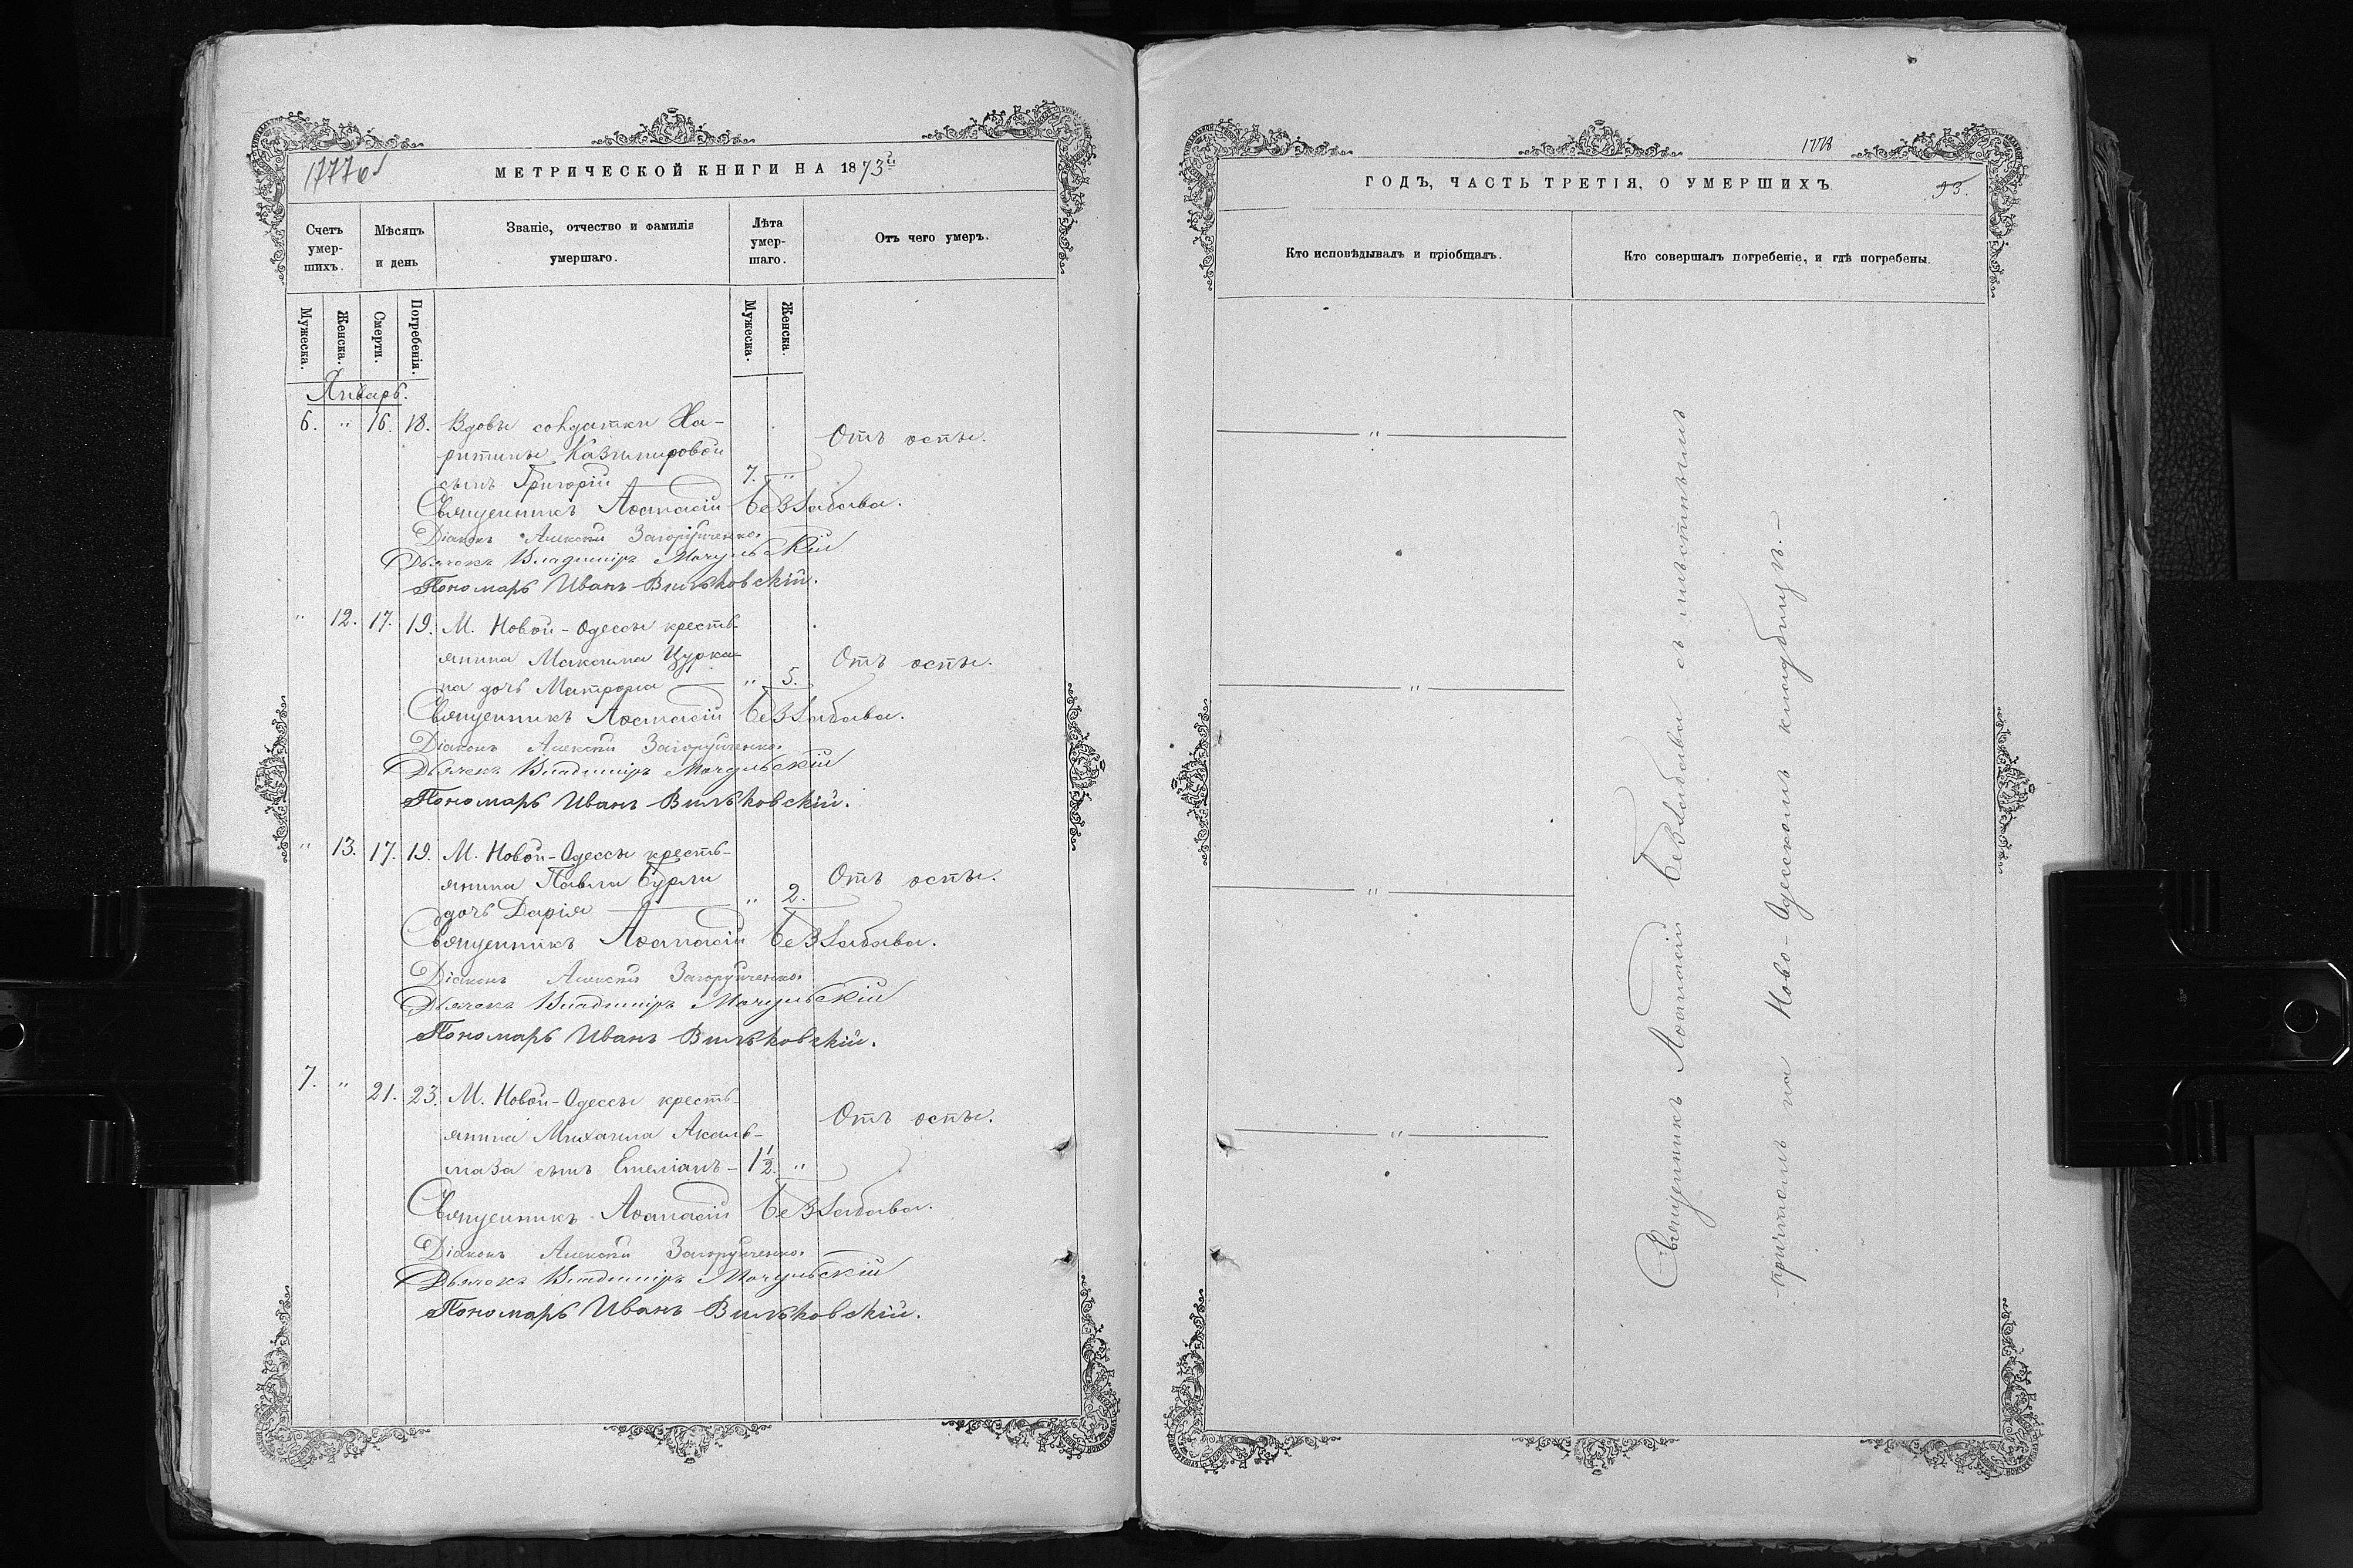 1776
МЕТРИЧЕСКОЙ КНИГИ НА 1873й
Счетъ умер- шихъ.
Мѣсяцъ и день
Званіе, отчество и фамилія умершаго.
Лѣта умер- шаго.
Отъ чего умеръ.
Мужеска.
Женска.
Смерти.
Погребенія.
Мужеска.
Женска.
Январь.
6. " 16. 18. Вдовы солдатки Ха-
ритины Казимировой Отъ оспы.
сынъ Григорій 7. "
Священникъ Аѳанасій Беззабава.
Діаконъ Алексѣй Загоруйченко.
Дьячекъ Владиміръ Мочульскій
Пономарь Иванъ Вильковскій.
" 12. 17. 19. М. Новой-Одессы кресть-
янина Максима Цурка- Отъ оспы.
на дочь Матрона " 5.
Священникъ Аѳанасій Беззабава.
Діаконъ Алексѣй Загоруйченко.
Дьячекъ Владиміръ Мочульскій
Пономарь Иванъ Вильковскій.
" 13. 17. 19. М. Новой-Одессы кресть-
янина Павла Бурли Отъ оспы.
дочь Дарія " 2.
Священникъ Аѳанасій Беззабава.
Діаконъ Алексѣй Загоруйченко.
Дьячекъ Владиміръ Мочульскій
Пономарь Иванъ Вильковскій.
7. " 21. 23. М. Новой-Одессы кресть-
янина Михаила Акаль- Отъ оспы.
маза сынъ Емеліанъ - 1½. "
Священникъ Аѳанасій Беззабава.
Діаконъ Алексѣй Загоруйченко.
Дьячекъ Владиміръ Мочульскій
Пономарь Иванъ Вильковскій.
1778
ГОДЪ, ЧАСТЬ ТРЕТІЯ, О УМЕРШИХЪ.
93.
Кто исповѣдывалъ и пріобщалъ.
Кто совершалъ погребеніе, и гдѣ погребены.
"
"
"
"
Священникъ Аѳанасій Беззабава съ мѣстнымъ
причтомъ на Ново-Одесскомъ кладбищѣ.-